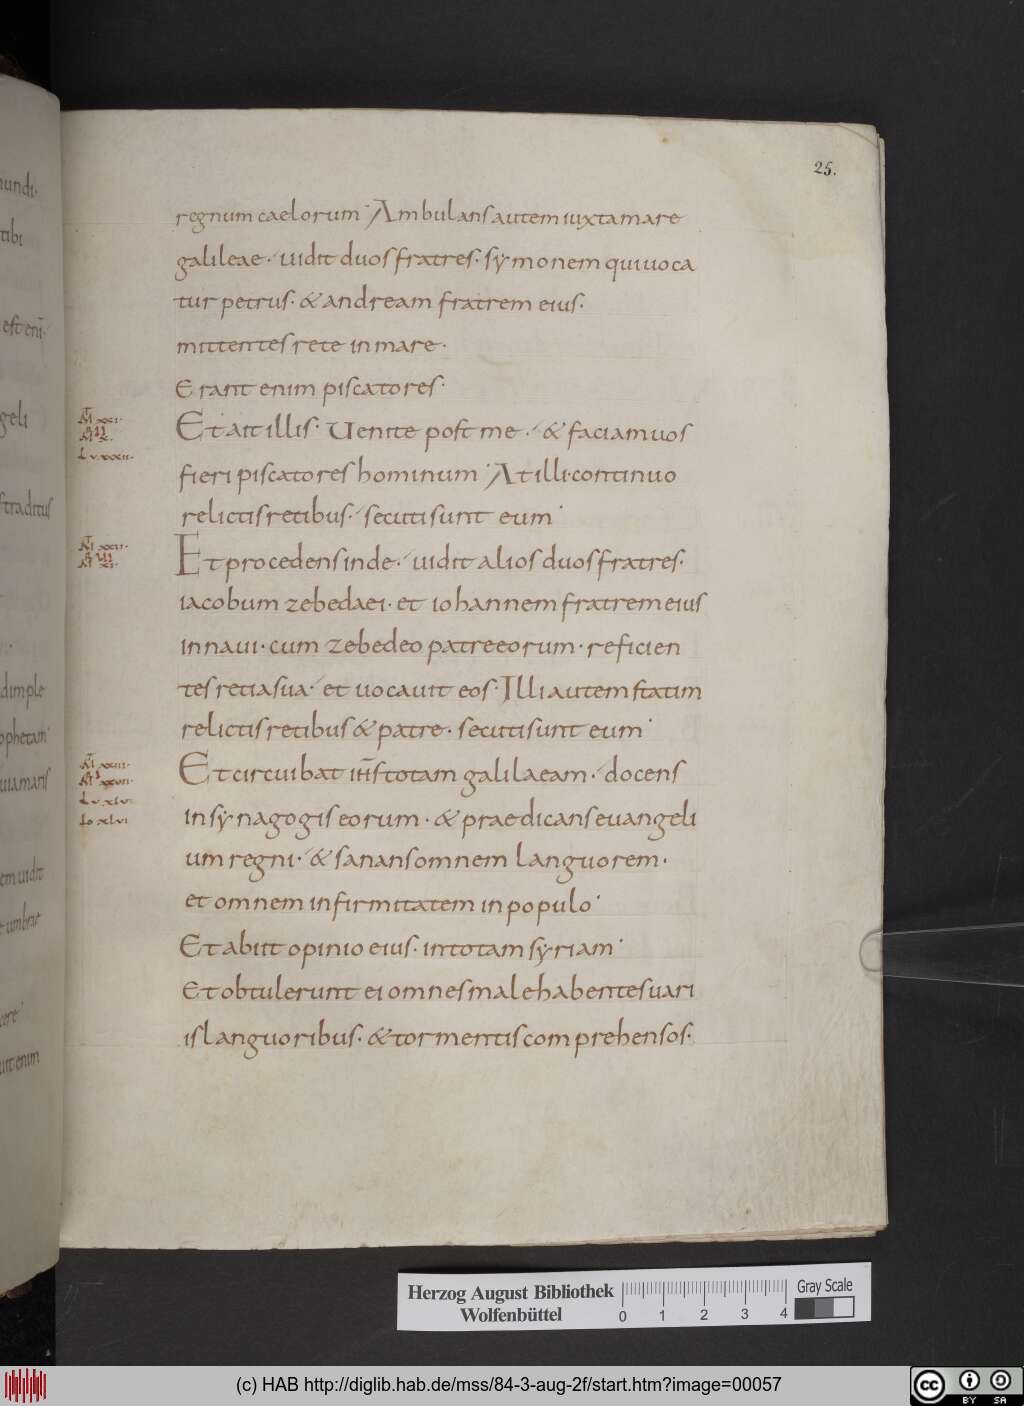 25.
regnum caelorum· Ambulans autem iuxta mare
galileae· uidit duos fratres· symonem qui uoca
tur petrus· & andream fratrem eius·
mittentes rete in mare·
Erant enim piscatores·
Et ait illis· Uenite post me· & faciam uos
fieri piscatores hominum· At illi· continuo
relictis retibus· secuti sunt eum·
Et procedens inde· uidit alios duos fratres·
iacobum zebedaei· et iohannem fratrem eius
in naui· cum zebedeo patre eorum· reficien
tes retia sua· et uocauit eos· Illi autem statim
relictis retibus & patre· secuti sunt eum·
Et circuibat ihs totam galilaeam· docens
in synagogis eorum· & praedicans euangeli
um regni· & sanans omnem languorem·
et omnem infirmitatem in populo·
Et abiit opinio eius· in totam syriam·
Et obtulerunt ei omnes male habentes uari
is languoribus· & tormentis comprehensos·
Herzog August Bibliothek
Wolfenbüttel
0 1 2 3 4
Gray Scale
(c) HAB http://diglib.hab.de/mss/84-3-aug-2f/start.htm?image=00057
cc BY SA